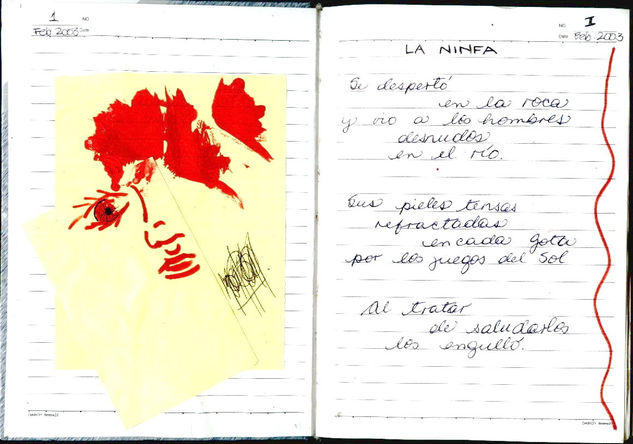 1
NO
Feb 2003 Date
NO I
Date Feb 2003
LA NINFA
Se despertó
en la roca
y vio a los hombres
desnudos
en el río.
Sus pieles tensas
refractadas
en cada gota
por los juegos del Sol
Al tratar
de saludarlos
los engulló.